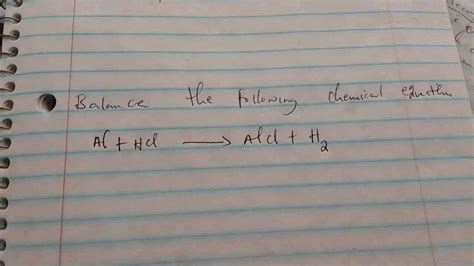 Balance the following chemical equation
Al + HCl → AlCl + H₂